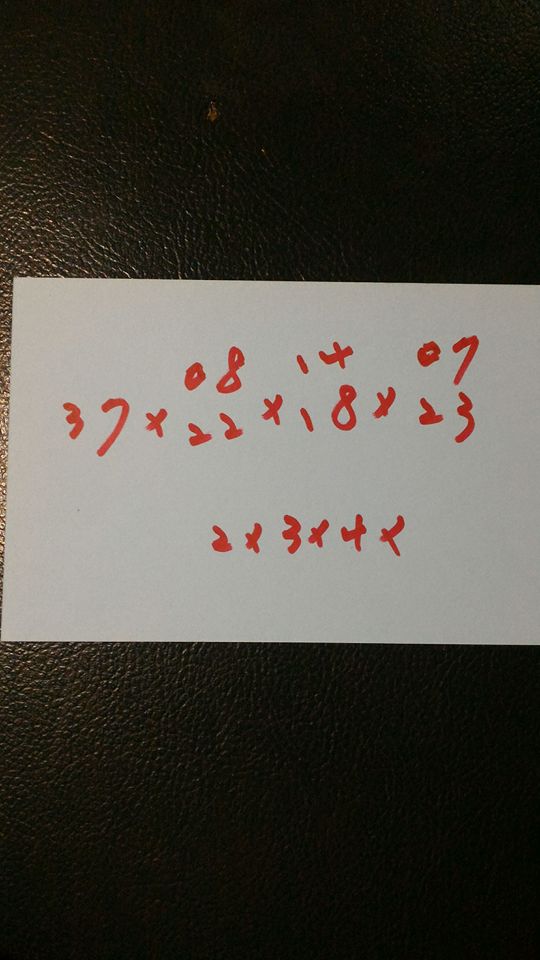 08 14 07
37 x 22 x 18 x 23
2 x 3 x 4 x